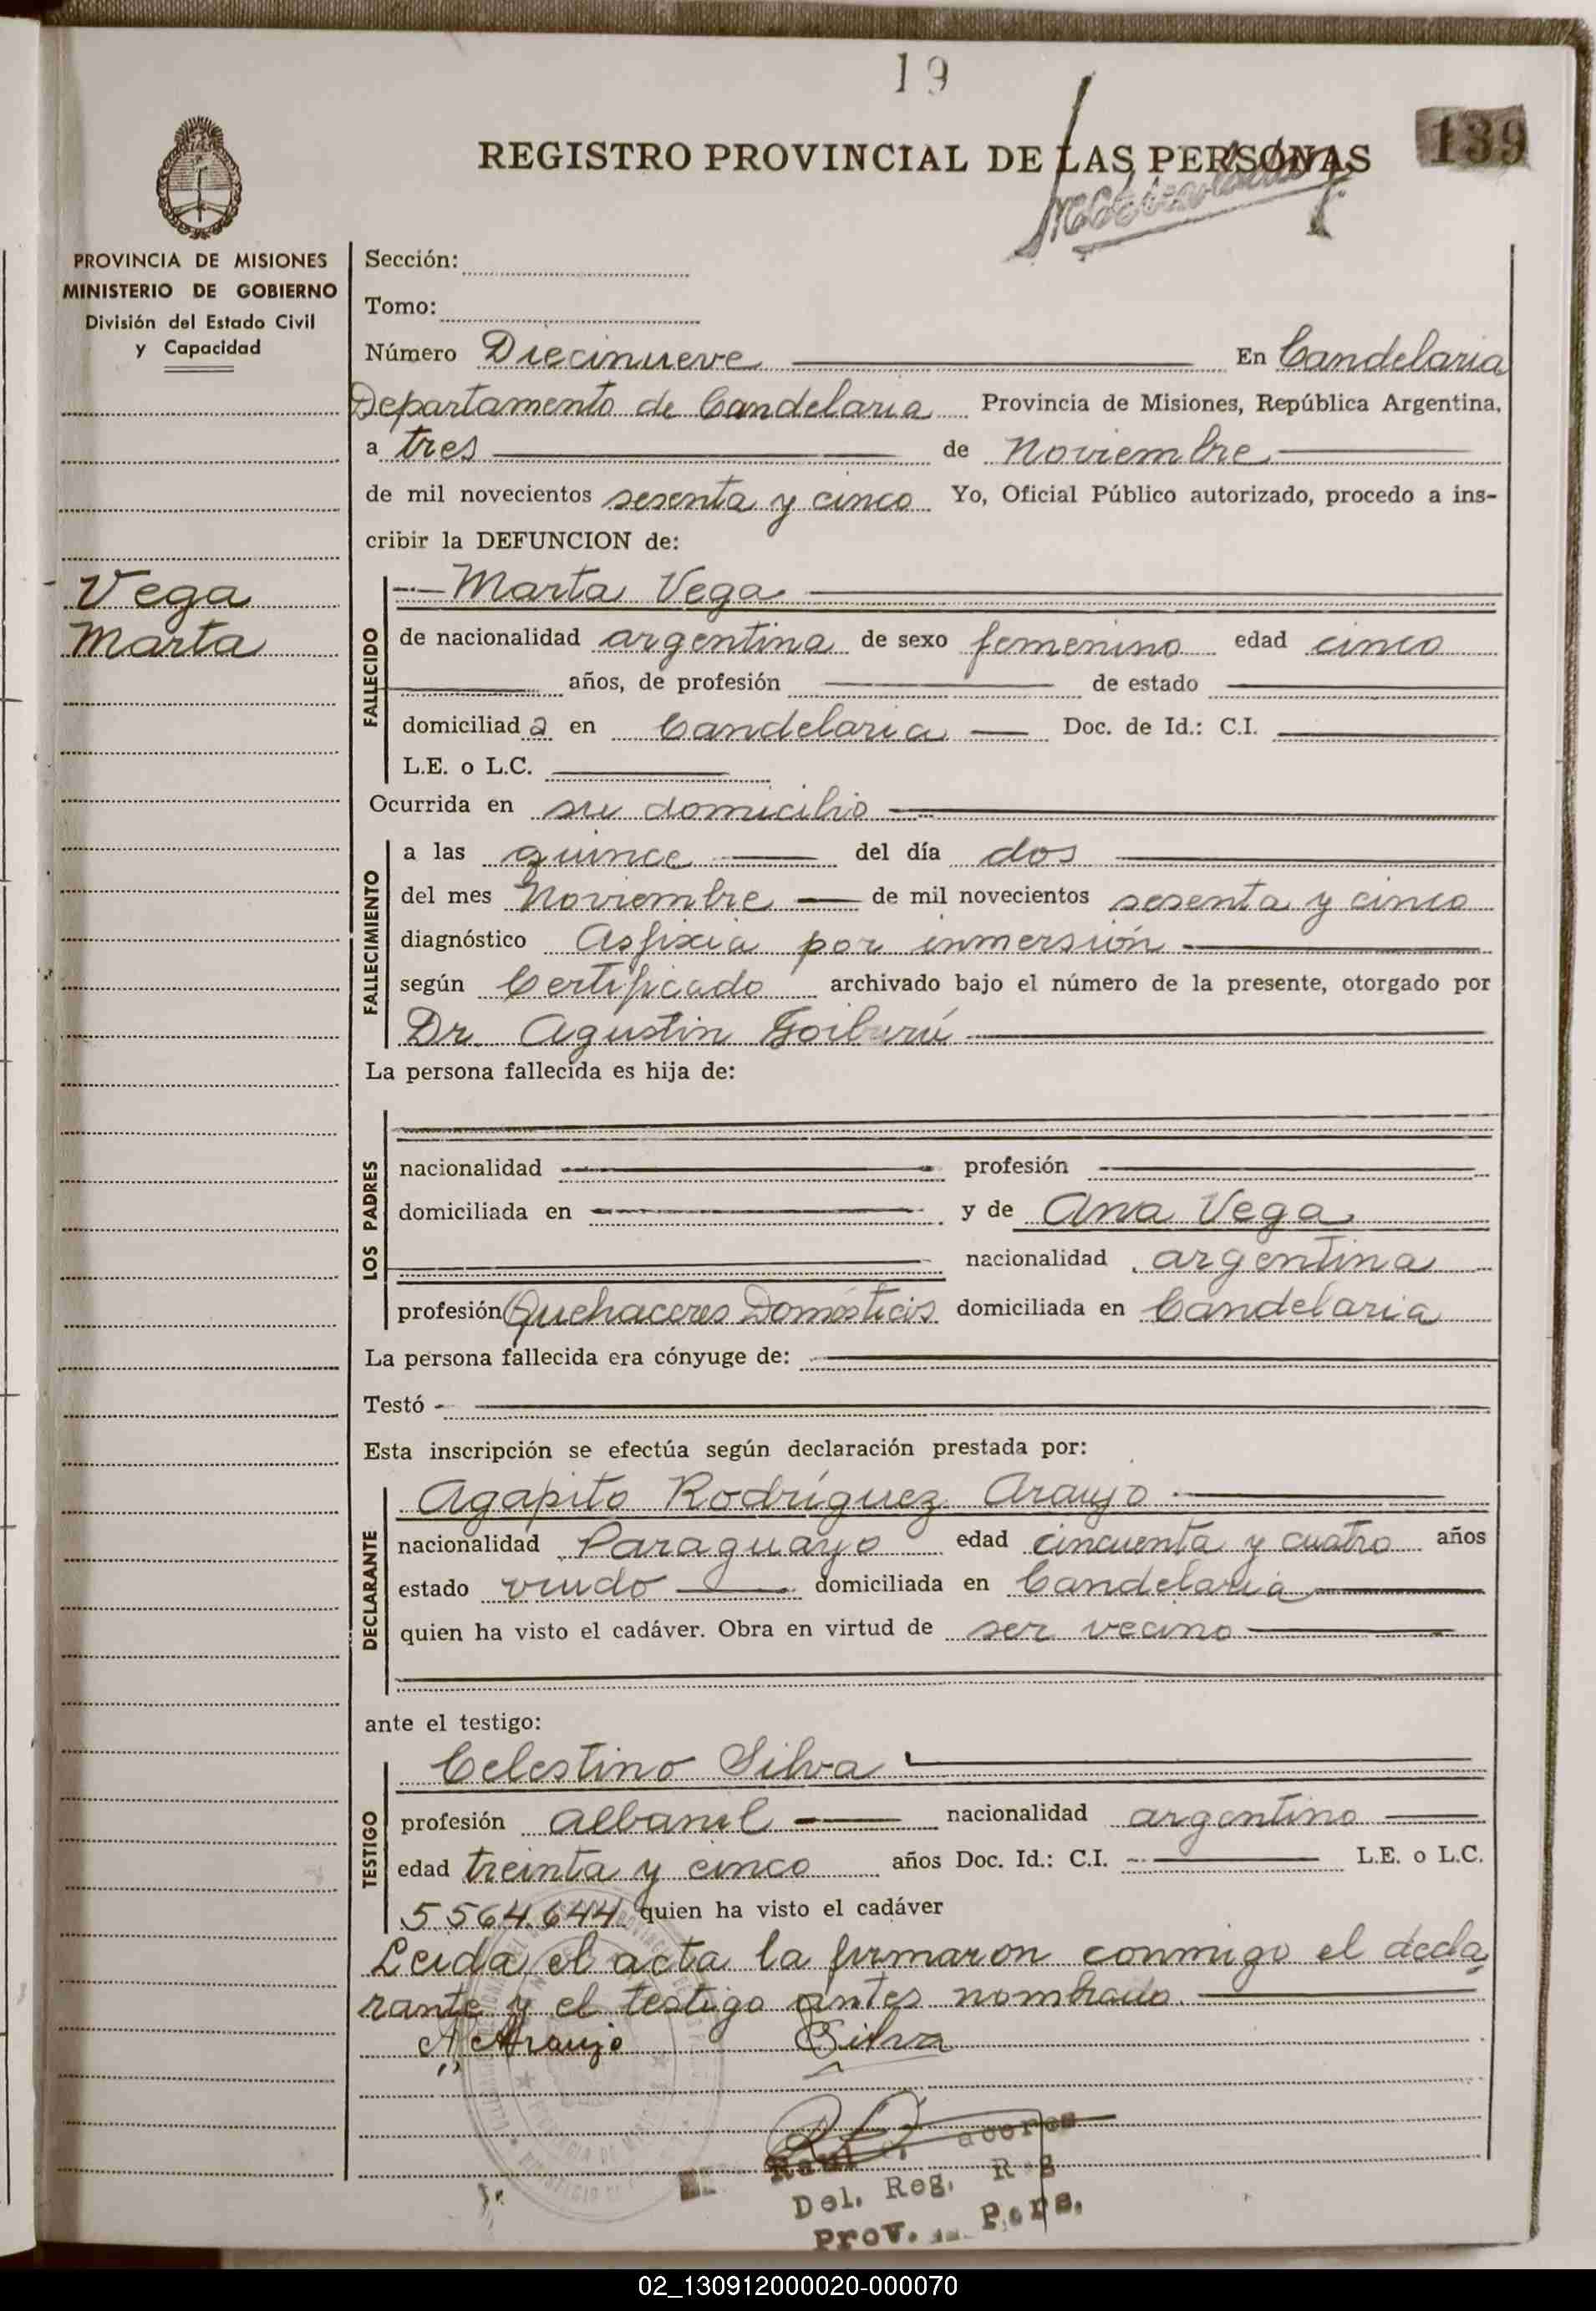 19
139
REGISTRO PROVINCIAL DE LAS PERSONAS
PROVINCIA DE MISIONES
MINISTERIO DE GOBIERNO
División del Estado Civil
y Capacidad
Vega
Marta
Sección:
Tomo:
Número Diecinueve En Candelaria
Departamento de Candelaria Provincia de Misiones, República Argentina,
a tres de Noviembre
de mil novecientos sesenta y cinco Yo, Oficial Público autorizado, procedo a ins-
cribir la DEFUNCION de:
FALLECIDO
Marta Vega
de nacionalidad argentina de sexo femenino edad cinco
años, de profesión de estado
domiciliad a en Candelaria Doc. de Id.: C.I.
L.E. o L.C.
Ocurrida en su domicilio
FALLECIMIENTO
a las quince del día dos
del mes Noviembre de mil novecientos sesenta y cinco
diagnóstico Asfixia por inmersión
según Certificado archivado bajo el número de la presente, otorgado por
Dr. Agustin Goiburú
La persona fallecida es hija de:
LOS PADRES
nacionalidad profesión
domiciliada en y de Ana Vega
nacionalidad argentina
profesión Quehaceres Domésticos domiciliada en Candelaria
La persona fallecida era cónyuge de:
Testó
Esta inscripción se efectúa según declaración prestada por:
DECLARANTE
Agapito Rodríguez Araujo
nacionalidad Paraguayo edad cincuenta y cuatro años
estado viudo domiciliada en Candelaria
quien ha visto el cadáver. Obra en virtud de ser vecino
ante el testigo:
TESTIGO
Celestino Silva
profesión albanil nacionalidad argentino
edad treinta y cinco años Doc. Id.: C.I. L.E. o L.C.
5.564.644 quien ha visto el cadáver
Leida el acta la firmaron conmigo el decla
rante y el testigo antes nombrado.
A Araujo Silva
Del. Reg.
Prov. Pers.
02_130912000020-000070